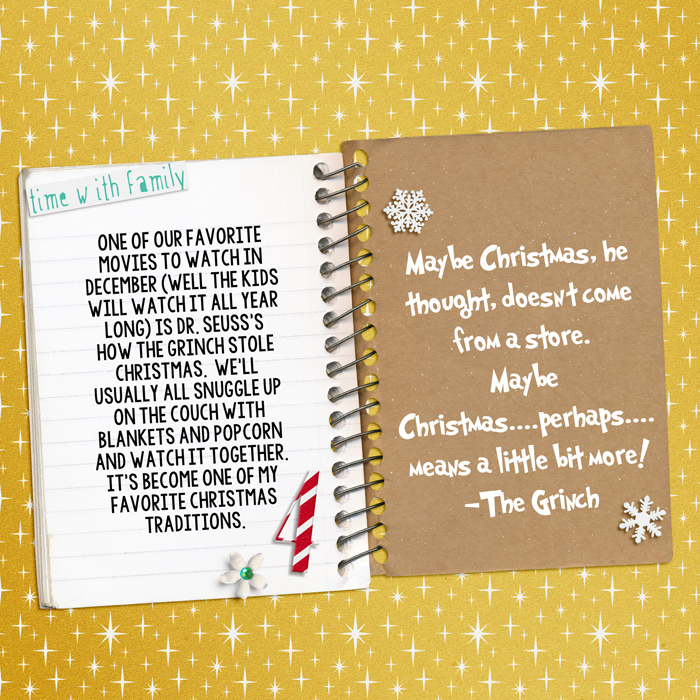 time with family
ONE OF OUR FAVORITE
MOVIES TO WATCH IN
DECEMBER (WELL THE KIDS
WILL WATCH IT ALL YEAR
LONG) IS DR. SEUSS'S
HOW THE GRINCH STOLE
CHRISTMAS. WE'LL
USUALLY ALL SNUGGLE UP
ON THE COUCH WITH
BLANKETS AND POPCORN
AND WATCH IT TOGETHER.
IT'S BECOME ONE OF MY
FAVORITE CHRISTMAS
TRADITIONS.
4
Maybe Christmas, he
thought, doesn't come
from a store.
Maybe
Christmas....perhaps....
means a little bit more!
-The Grinch